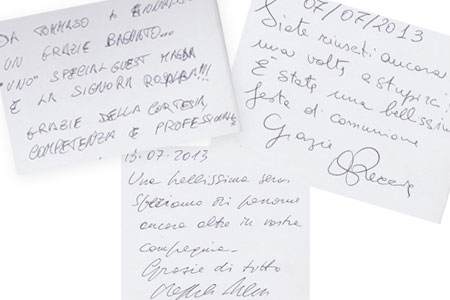 DA TOMMASO A
UN GRAZIE BAGNATO...
"UNO" SPECIAL GUEST
E LA SIGNORA ROSALBA!!!
GRAZIE DELLA CORTESIA,
COMPETENZA E PROFESSIONAL
07/07/2013
Siete riusciti ancora
una volta a stupirci!
E' stata una bellissim
festa di comunione
Grazie
15.07.2013
Una bellissima sera
speriamo di
ancora altre in vostra
compagnia.
Grazie di tutto